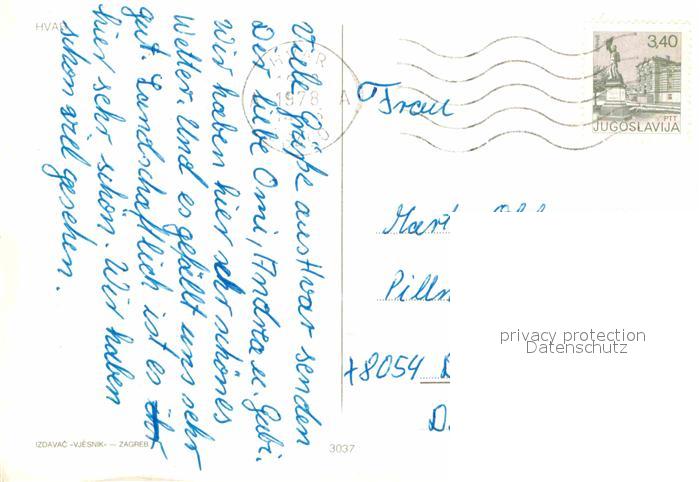 HVAR
Viele Grüße aus Hvar senden
Dir liebe Omi, Andrea u. Gabi.
Wir haben hier sehr schönes
Wetter. Und es gefällt uns sehr
gut. Landschaftlich ist es
hier sehr schön. Wir haben
schon viel gesehen.
IZDAVAČ »VJESNIK« — ZAGREB
3037
HVAR
1978
A
3,40
PTT
JUGOSLAVIJA
Frau
8054
D.
privacy protection
Datenschutz